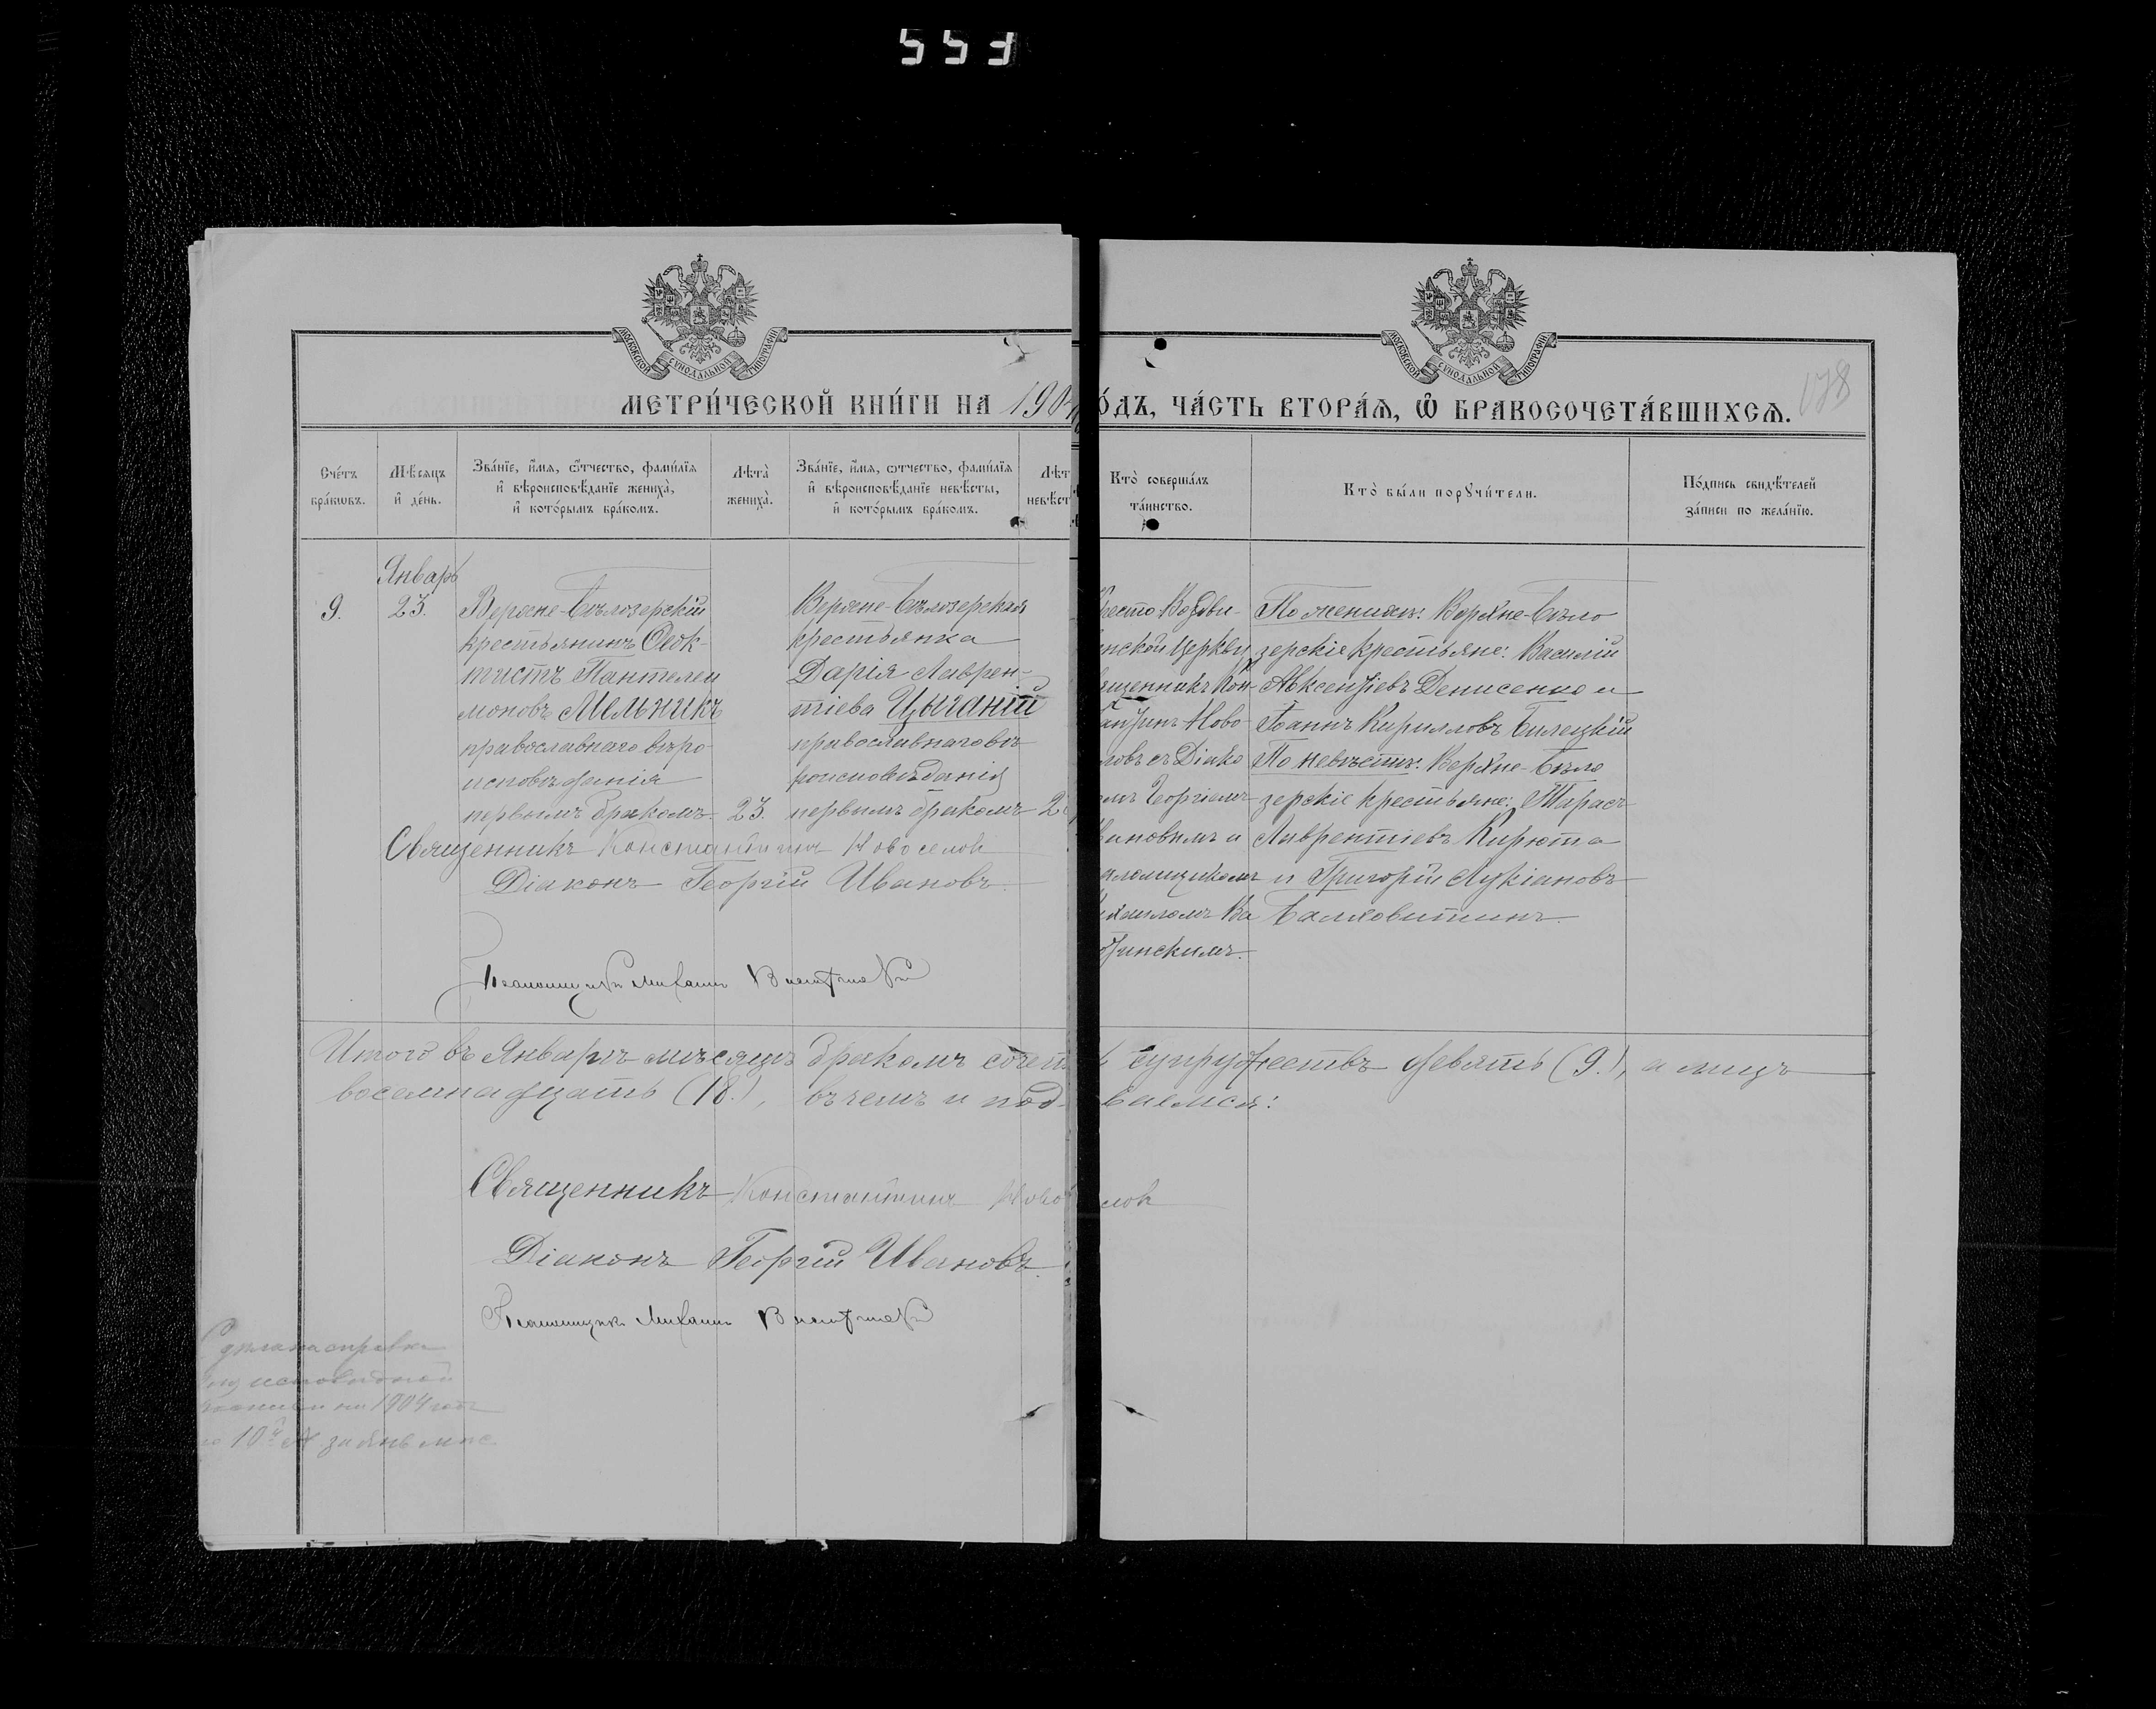 553
МОСКОВСКОЙ СѴНОДАЛЬНОЙ ТИПОГРАФІИ
МОСКОВСКОЙ СѴНОДАЛЬНОЙ ТИПОГРАФІИ
178
МЕТРИ́ЧЕСКОЙ КНИ́ГИ НА 1904
О́ДЪ, ЧА́СТЬ ВТОРА́Ѧ, Ѽ БРАКОСОЧЕТА́ВШИХСѦ.
Сче́тъ бра́кѡвъ.
Мѣ́сѧцъ и҆ де́нь.
Зва́нїе, и҆́мѧ, ѻ҆́тчество, фами́лїѧ и҆ вѣроисповѣ́данїе жениха̀, и҆ кото́рымъ бра́комъ.
Лѣта̀ жениха̀.
Зва́нїе, и҆́мѧ, ѻ҆́тчество, фами́лїѧ и҆ вѣроисповѣ́данїе невѣ́сты, и҆ кото́рымъ бра́комъ.
Лѣт невѣ́ст
Кто̀ соверша́лъ та́инство.
Кто̀ бы́ли порꙋчи́тели.
По́дпись свидѣ́телей за́писи по жела́нїю.
Январь
9.
23.
Верхне-Бѣлозерскій
крестьянинъ Ѳеок-
тистъ Пантелеи
моновъ Мельникъ
православнаго вѣро-
исповѣданія
первымъ бракомъ
23.
Верхне-Бѣлозерская
крестьянка
Дарія Лаврен-
тіева Цыганій
православнаго вѣ-
роисповѣданія
первымъ бракомъ
2
ресто-Воздви-
нской Церкви
ященникъ Кон-
антинъ Ново-
ловъ съ Діако
омъ Георгіемъ
Ивановымъ и
аломщикомъ
ихаиломъ Ва
тинскимъ.
По женихѣ: Верхне-Бѣло
зерскіе крестьяне: Василій
Авксентіевъ Денисенко и
Іоаннъ Кирилловъ Билецкій
По невѣстѣ: Верхне-Бѣло
зерскіе крестьяне: Тарасъ
Лаврентіевъ Кирюта
и Григорій Лукіановъ
Балховитинъ.
Священникъ Константинъ Новоселов
Діаконъ Георгій Ивановъ
Псаломщикъ Михаилъ
Итого въ Январѣ мѣсяцѣ бракомъ сочет супружествъ девять (9.), а лицъ
восемнадцать (18.), въ чемъ и под ваемся:
Священникъ Константинъ Ново лов
Діаконъ Георгій Ивановъ.
Псаломщикъ Михаилъ
Сдѣлана справка
исповѣдной
на 1904 годъ
10